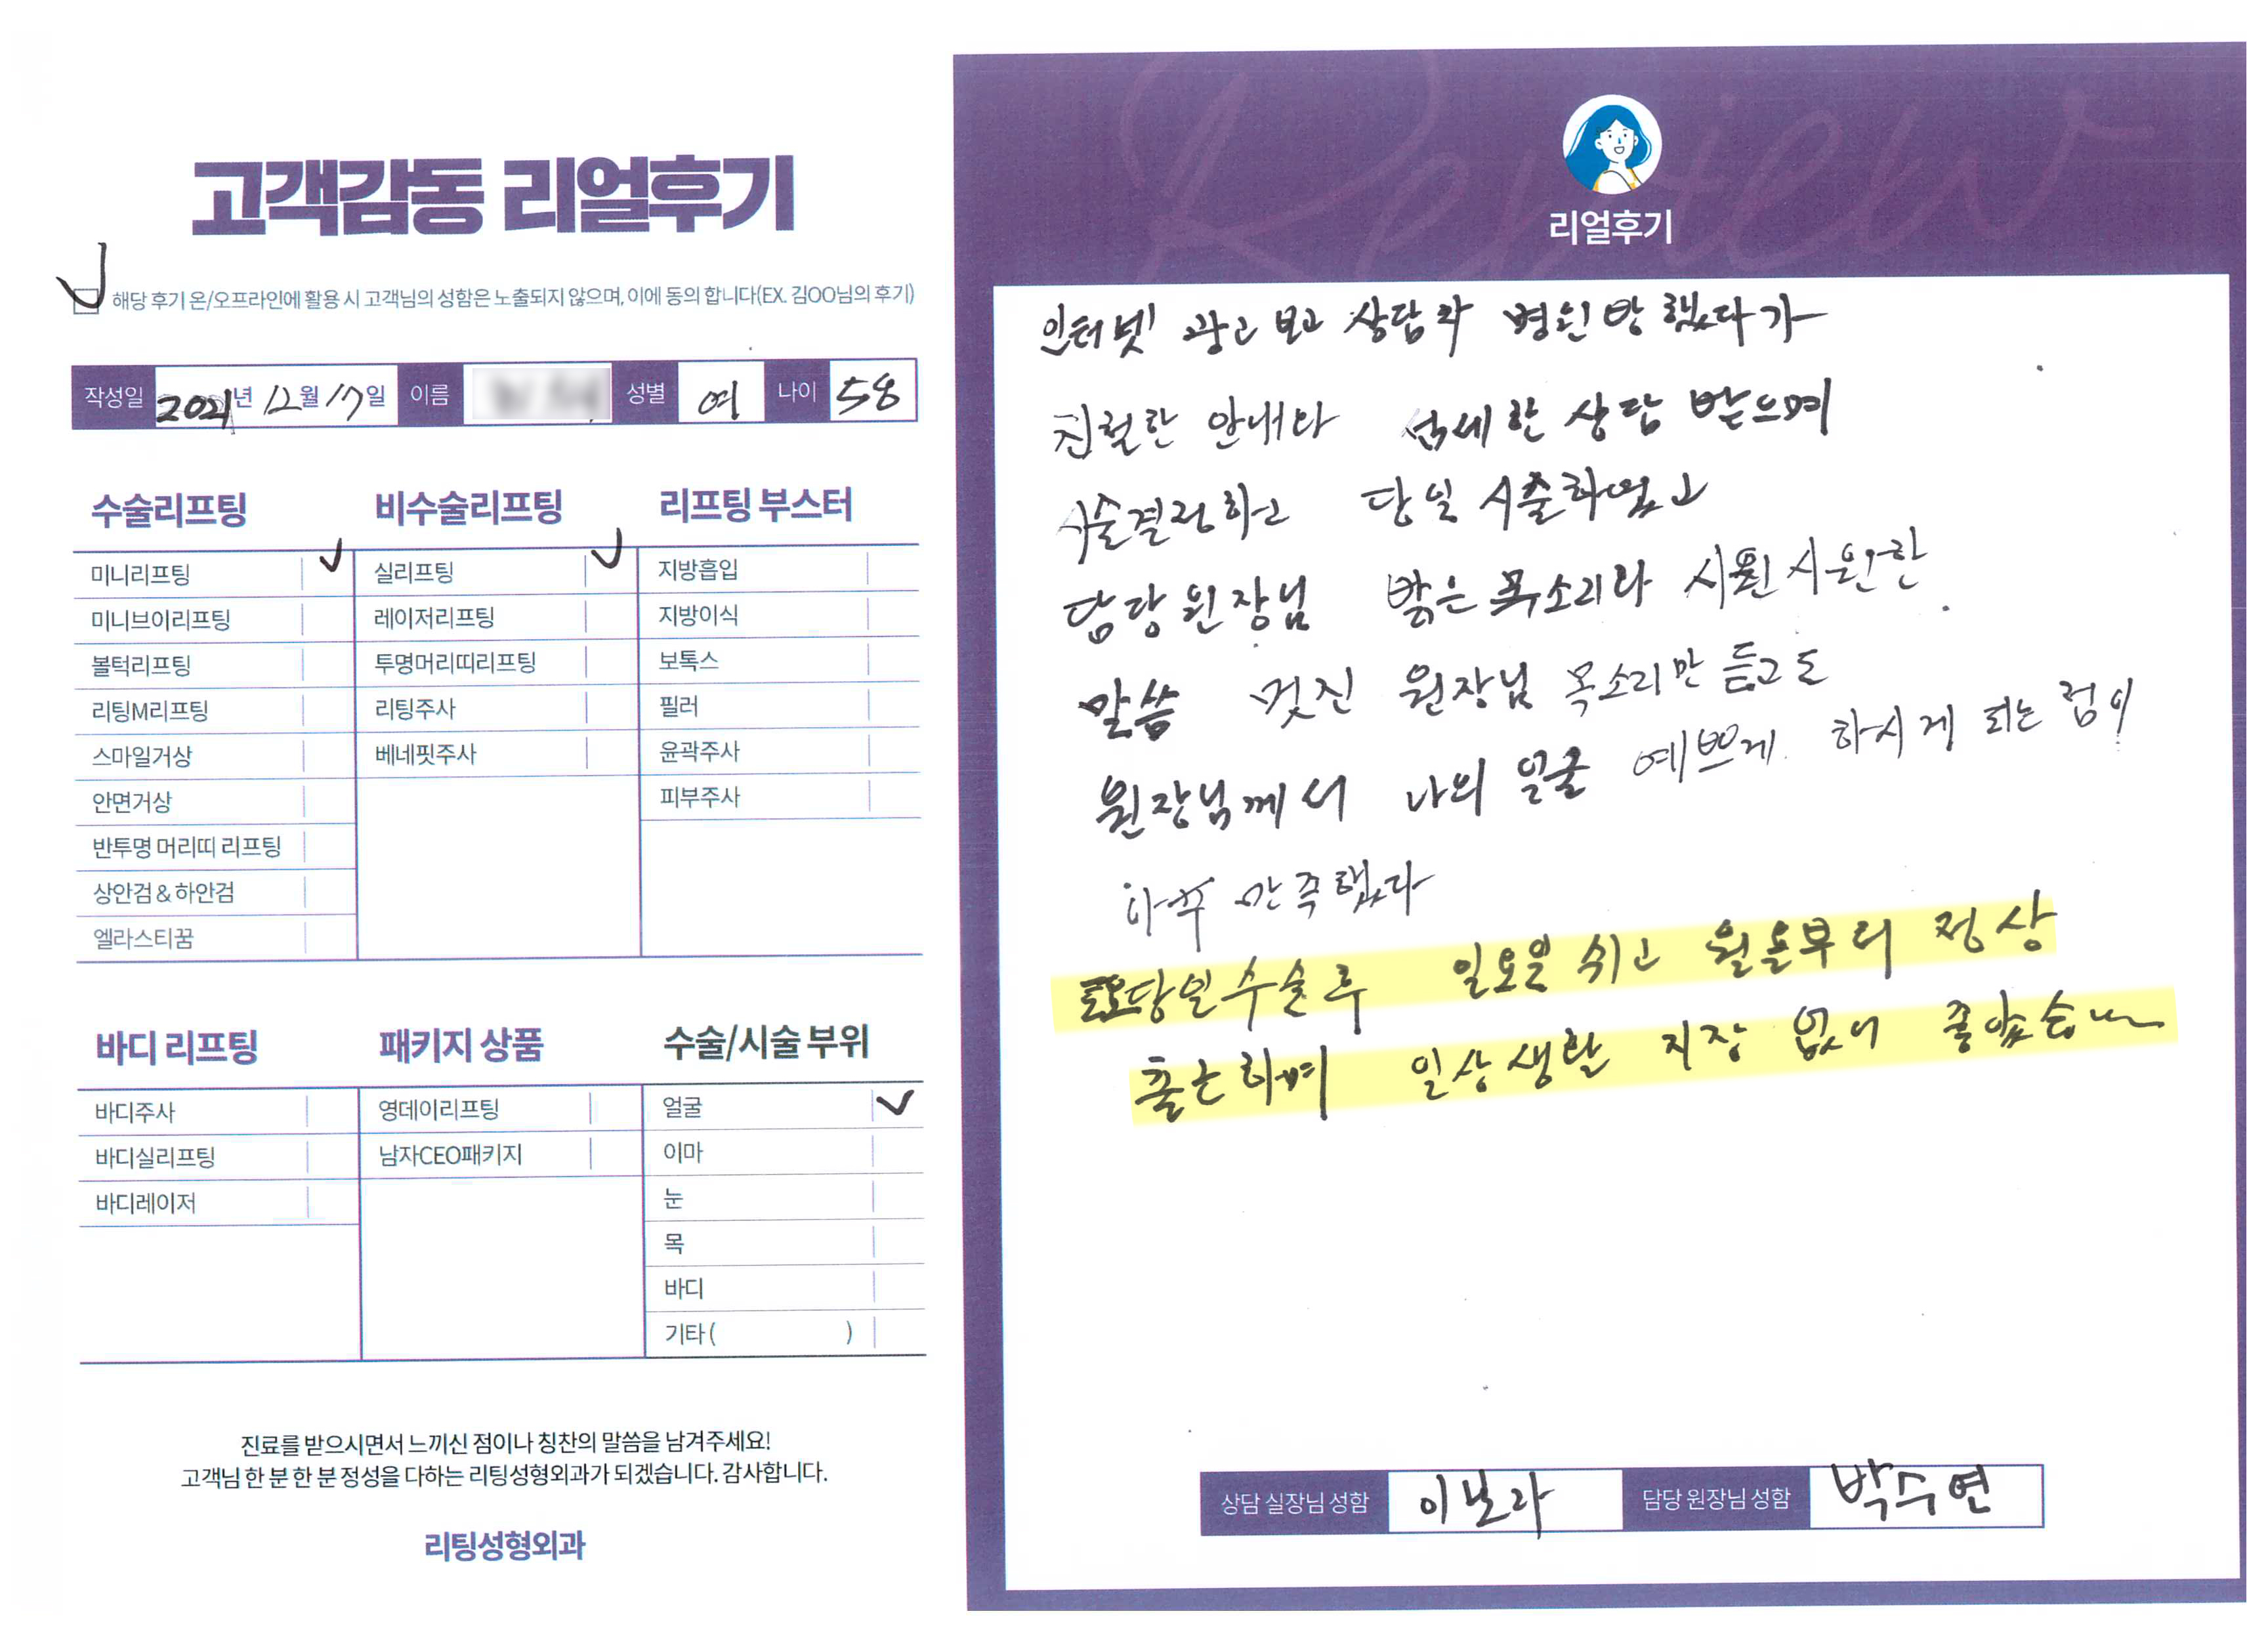 고객감동 리얼후기
해당 후기 온/오프라인에 활용 시 고객님의 성함은 노출되지 않으며, 이에 동의 합니다(EX. 김OO님의 후기)
작성일 2021년 12월 17일 이름 성별 여 나이 58
수술리프팅
미니리프팅
미니브이리프팅
볼턱리프팅
리팅M리프팅
스마일거상
안면거상
반투명 머리띠 리프팅
상안검 & 하안검
엘라스티꿈
비수술리프팅
실리프팅
레이저리프팅
투명머리띠리프팅
리팅주사
베네핏주사
리프팅 부스터
지방흡입
지방이식
보톡스
필러
윤곽주사
피부주사
바디 리프팅
바디주사
바디실리프팅
바디레이저
패키지 상품
영데이리프팅
남자CEO패키지
수술/시술 부위
얼굴
이마
눈
목
바디
기타 ( )
진료를 받으시면서 느끼신 점이나 칭찬의 말씀을 남겨주세요!
고객님 한 분 한 분 정성을 다하는 리팅성형외과가 되겠습니다. 감사합니다.
리팅성형외과
Review
리얼후기
인터넷 광고 보고 상담차 병원방 했다가
친절한 안내와 섬세한 상담 받으며
시술결정하고 당일 시술하였고
담당원장님 밝은 목소리와 시원시원한
말씀 멋진 원장님 목소리만 듣고도
원장님께서 나의 얼굴 예쁘게 하시게 되는 점이
아주 만족했다
당일수술후 일요일 쉬고 월욜부터 정상
출근하며 일상생활 지장 없어 좋았습
상담 실장님 성함 이보라 담당 원장님 성함 박수연